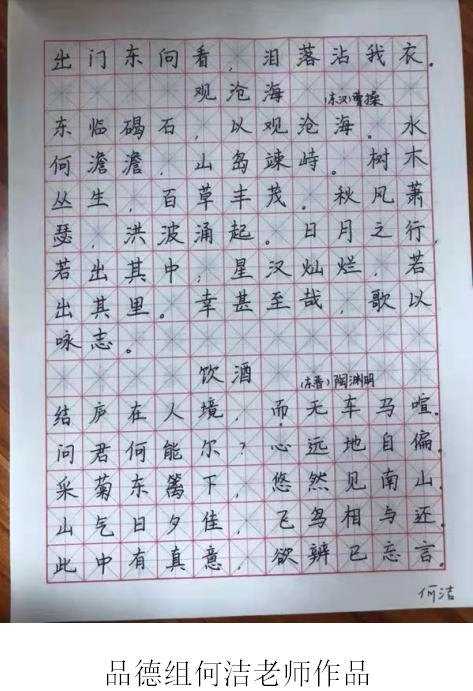 出门东向看，泪落沾我衣。
观沧海 （东汉）曹操
东临碣石，以观沧海。水
何澹澹，山岛竦峙。树木
丛生，百草丰茂。秋风萧
瑟，洪波涌起。日月之行，
若出其中；星汉灿烂，若
出其里。幸甚至哉，歌以
咏志。
饮酒 （东晋）陶渊明
结庐在人境，而无车马喧。
问君何能尔？心远地自偏。
采菊东篱下，悠然见南山。
山气日夕佳，飞鸟相与还。
此中有真意，欲辨已忘言。
何洁
品德组何洁老师作品